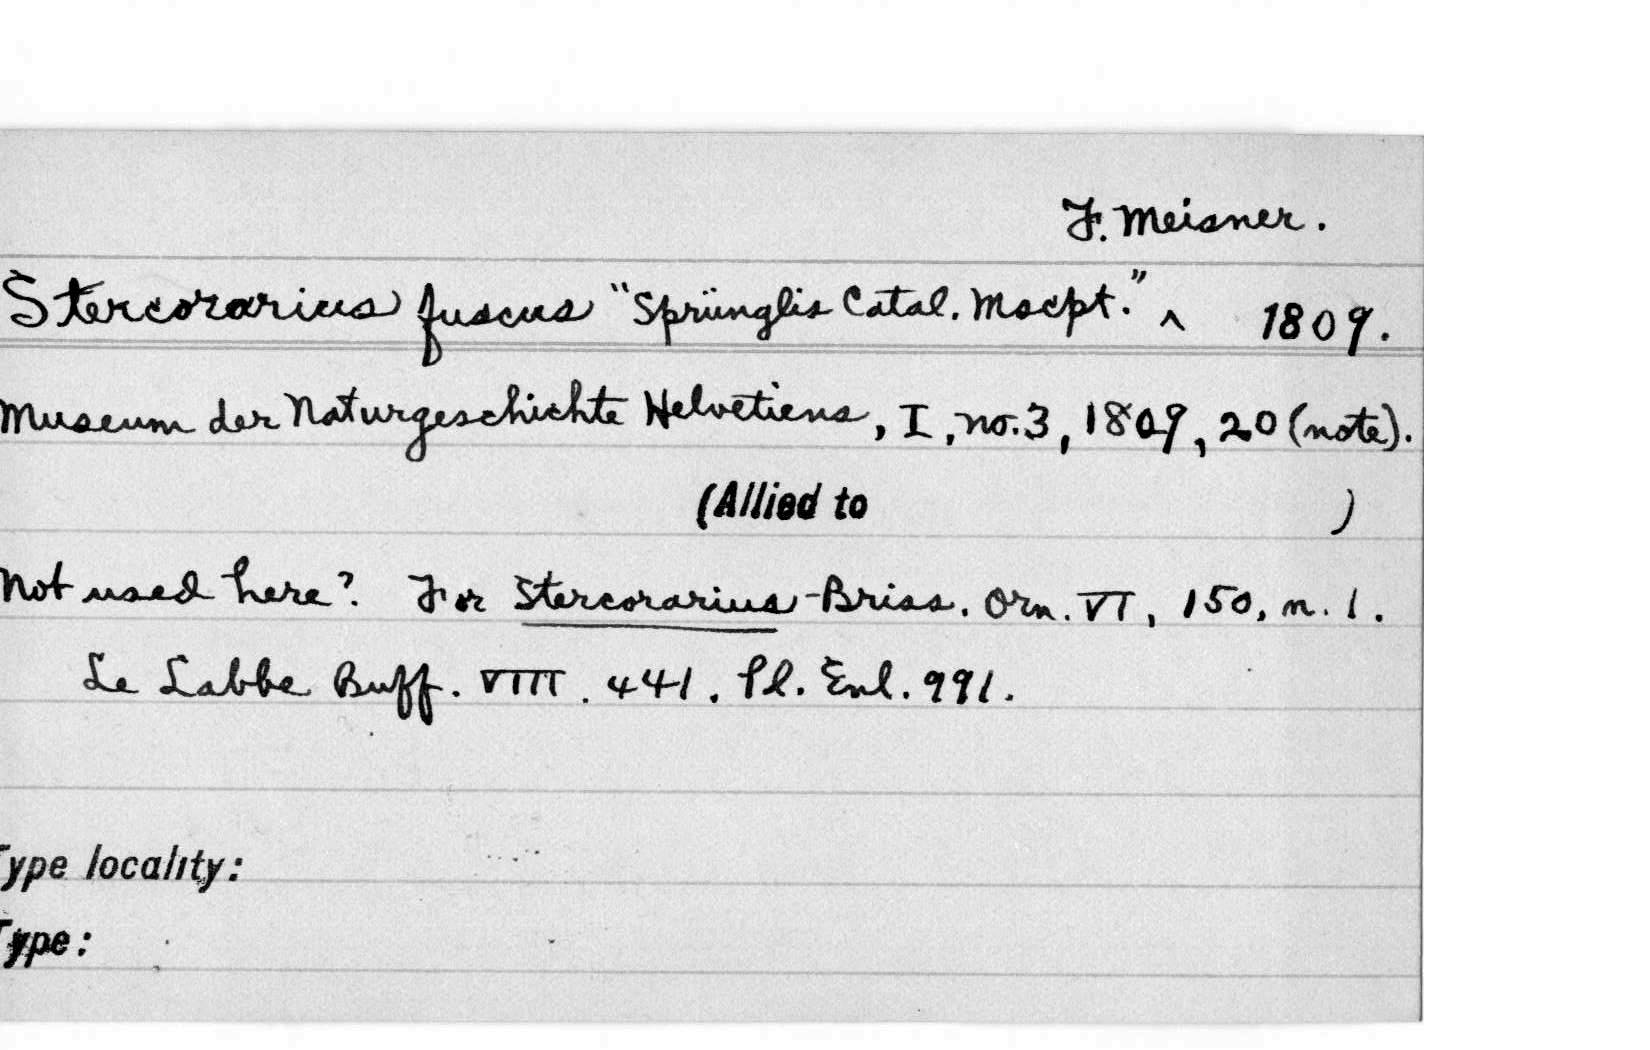 F. Meisner.
Stercorarius fuscus "Sprünglis Catal. Mscpt." ^ 1809.
Museum der Naturgeschichte Helvetiens, I, no. 3, 1809, 20 (note).
(Allied to )
Not used here? For Stercorarius - Briss. Orn. VI, 150, n. 1.
Le Labbe Buff. VIII. 441. Pl. Enl. 991.
Type locality:
Type: